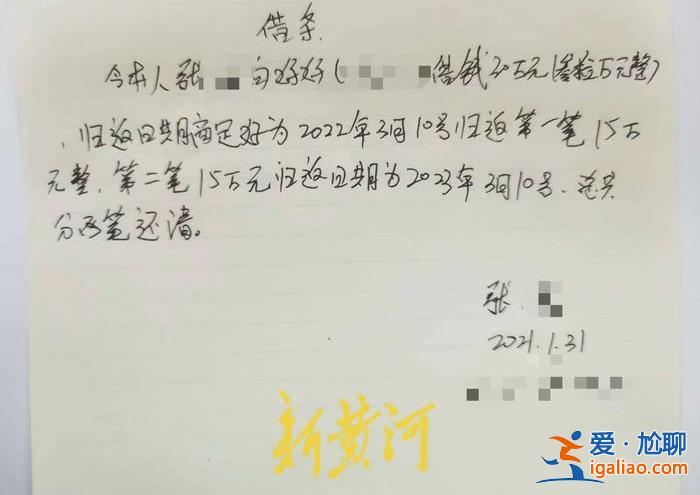 借条
今本人张 向好好( 借钱30万元(叁拾万元整)
，归返日期商定好为2022年3月10号归返第一笔15万
元整，第二笔15万元归返日期为2023年3月10号、总共
分两笔还清。
张
2021.1.31
新黄河
爱·尬聊
igaliao.com